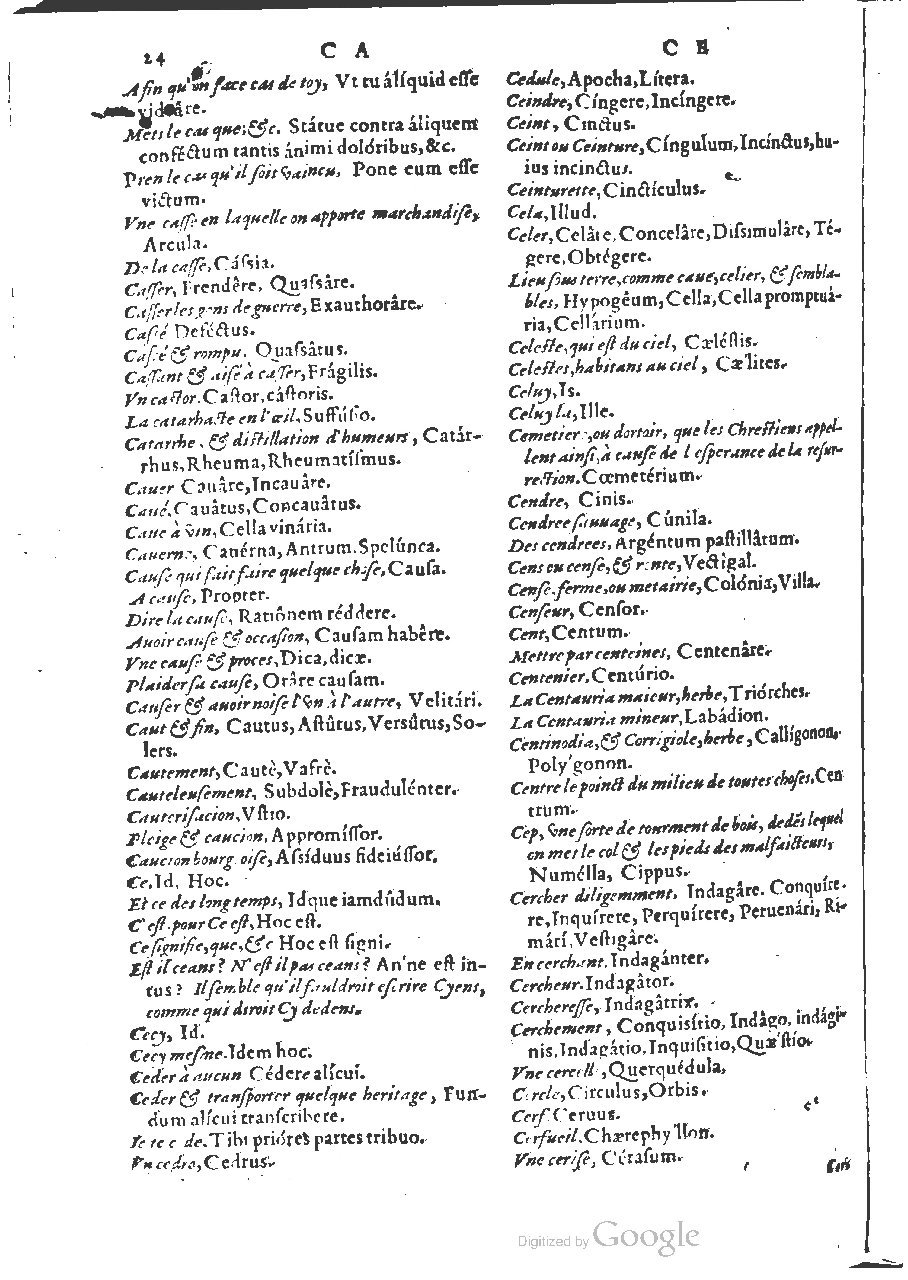 24
C A
Afin qu'on face cas de toy, Vt tu áliquid esse
videâre.
Mets le cas que, &c. Státue contra áliquem
conféctum tantis ánimi dolóribus, &c.
Pren le cas qu'il soit vaincu, Pone eum esse
victum.
Vne casse en laquelle on apporte marchandise,
Arcula.
De la casse, Cássia.
Casser, Frendêre, Quassâre.
Casser les gens de guerre, Exauthorâre.
Cassé Deféctus.
Cassé & rompu, Quassâtus.
Cassant & aisé à casser, Frágilis.
Vn castor, Castor, cástoris.
La catarhacte en l'œil, Suffúsio.
Catarrhe, & distillation d'humeurs, Catár-
rhus, Rheuma, Rheumatísmus.
Cauer Cauâre, Incauâre.
Caué, Cauâtus, Concauâtus.
Caue à vin, Cella vinária.
Cauerne, Cauérna, Antrum, Spelúnca.
Cause qui fait faire quelque chose, Causa.
A cause, Propter.
Dire la cause, Ratiônem réddere.
Auoir cause & occasion, Causam habêre.
Vne cause & proces, Dica, dicæ.
Plaider sa cause, Orâre causam.
Causer & auoir noise l'vn à l'autre, Velitári.
Caut & fin, Cautus, Astûtus, Versûtus, So-
lers.
Cautement, Cautè, Vafrè.
Cauteleusement, Subdolè, Fraudulénter.
Cauterisacion, Vstio.
Pleige & caucion, Appromíssor.
Caucion bourgoise, Assíduus fideiússor.
Ce, Id, Hoc.
Et ce des long temps, Idque iamdûdum.
C'est, pour Ce est, Hoc est.
Ce signifie, que, &c Hoc est signi.
Est il ceans? N'est il pas ceans? An'ne est in-
tus? Il semble qu'il fauldroit escrire Cyens,
comme qui diroit Cy dedens.
Cecy, Id.
Cecy mesme, Idem hoc.
Ceder à aucun Cédere alícui.
Ceder & transporter quelque heritage, Fun-
dum alícui transcribere.
Ie te cede, Tibi prióres partes tribuo.
Vn cedre, Cedrus.
C E
Cedule, Apocha, Lítera.
Ceindre, Cíngere, Incíngere.
Ceint, Cinctus.
Ceint ou Ceinture, Cíngulum, Incínctus, hu-
ius incinctus.
Ceinturette, Cinctículus.
Cela, Illud.
Celer, Celâre, Concelâre, Dissimulâre, Té-
gere, Obtégere.
Lieu sous terre, comme caue, celier, & sembla-
bles, Hypogêum, Cella, Cella promptuá-
ria, Cellárium.
Celeste, qui est du ciel, Cæléstis.
Celestes, habitans au ciel, Cæ'lites.
Celuy, Is.
Celuy la, Ille.
Cemetiere, ou dortoir, que les Chrestiens appel-
lent ainsi, à cause de l esperance de la resur-
rection. Cœmetérium.
Cendre, Cinis.
Cendree sauuage, Cúnila.
Des cendrees, Argéntum pastillâtum.
Cens ou cense, & rente, Vectígal.
Cense, ferme, ou metairie, Colónia, Villa.
Censeur, Censor.
Cent, Centum.
Mettre par centeines, Centenâre.
Centenier, Centúrio.
La Centauria maieur, herbe, Triórches.
La Centauria mineur, Labádion.
Centinodia, & Corrigiole, herbe, Callígonon,
Poly'gonon.
Centre le poinct du milieu de toutes choses, Cen
trum.
Cep, vne sorte de tourment de bois, dedẽs lequel
on met le col & les pieds des malfaicteurs,
Numélla, Cippus.
Cercher diligemment, Indagâre. Conquíre-
re, Inquírere, Perquírere, Peruenári, Ri-
mári, Vestigâre.
En cerchant, Indagánter.
Cercheur, Indagâtor.
Cercheresse, Indagâtrix.
Cerchement, Conquisítio, Indâgo, indági-
nis, Indagátio, Inquisitio, Quæ'stio.
Vne cercelle, Querquédula,
Cercle, Circulus, Orbis.
Cerf Ceruus.
Cerfueil, Chærephy'llon.
Vne cerise, Cérasum.
Digitized by Google